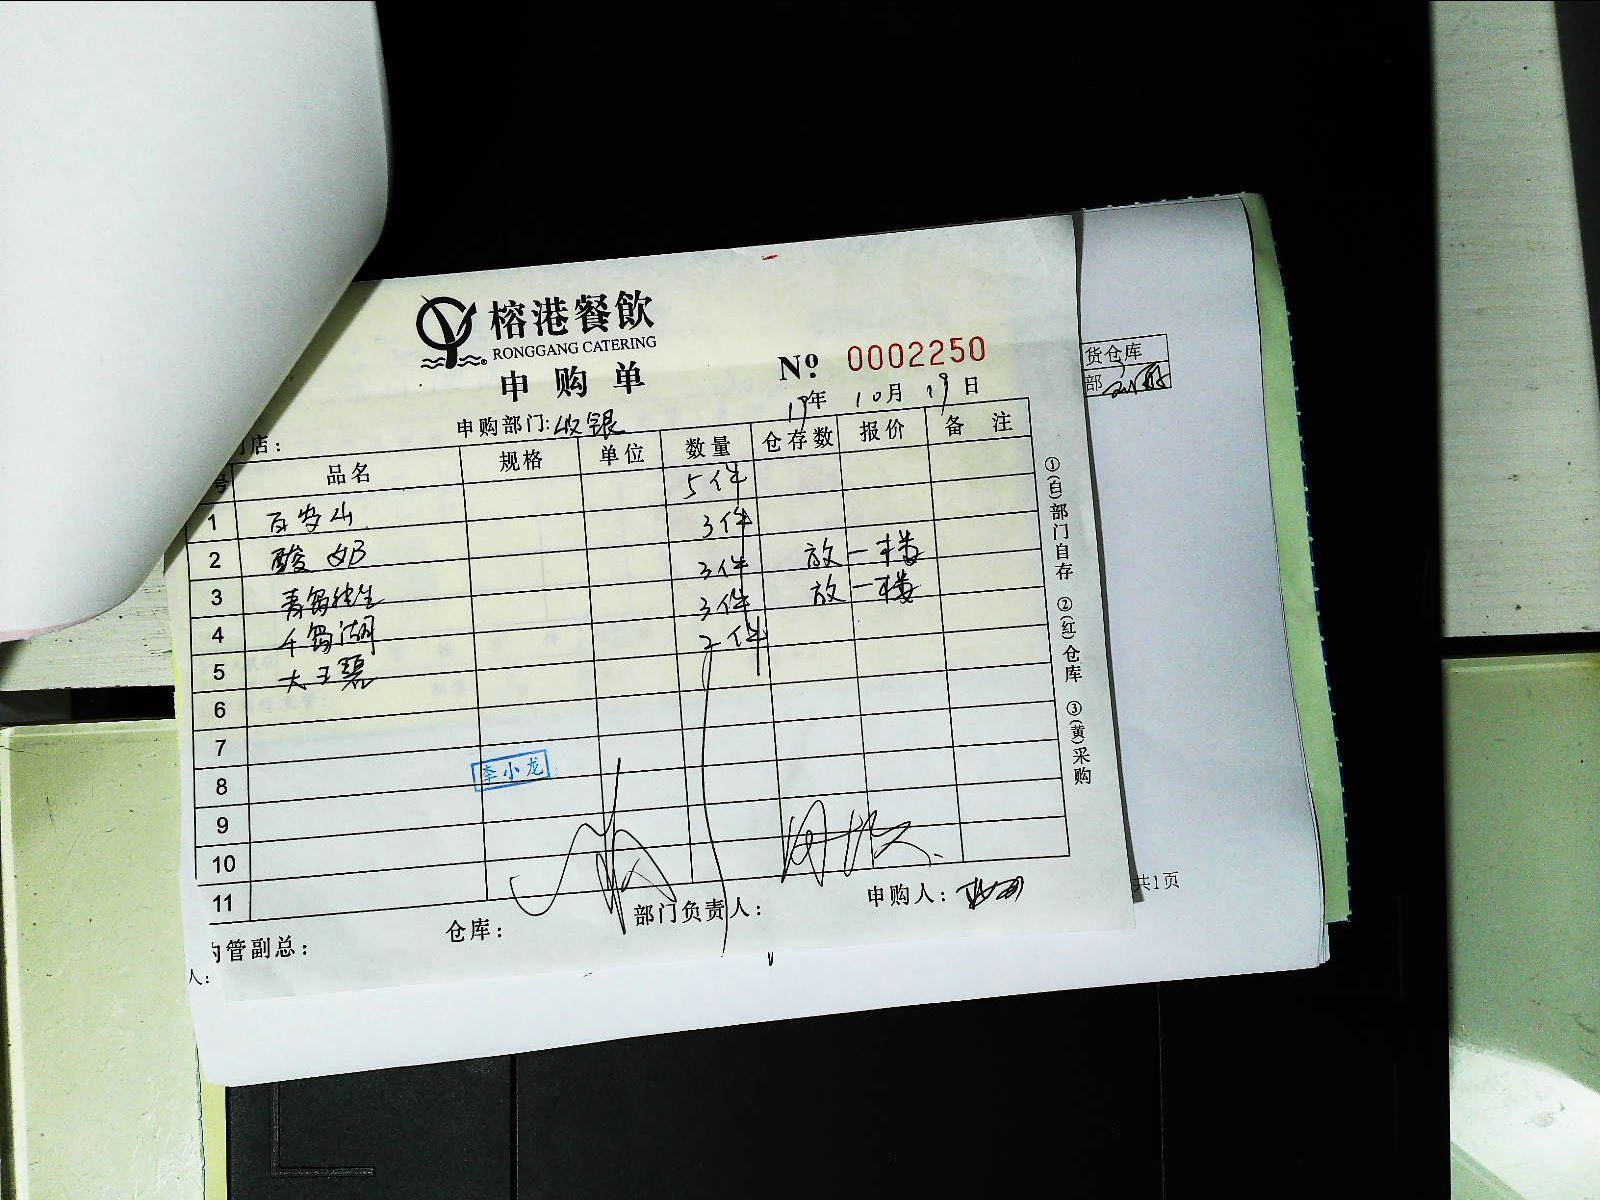 榕港餐飲
RONGGANG CATERING
申购单
№ 0002250
门店： 申购部门:收银 19年 10月 19日
号 品名 规格 单位 数量 仓存数 报价 备注
1 百岁山 5件
2 酸奶 3件
3 青岛纯生 3件 放一楼
4 千岛湖 3件 放一楼
5 大王碧 2件
6
7
8
9
10
11
李小龙
仓库： 部门负责人： 申购人：
内管副总：
人：
①(自)部门自存 ②(红)仓库 ③(黄)采购
货仓库
部
共1页